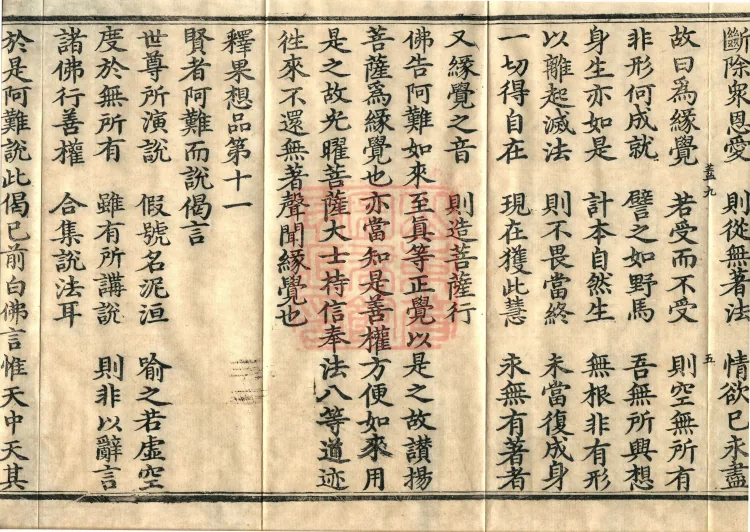 斷除衆恩愛 則從無著法 情欲已永盡
故曰爲緣覺 若受而不受 則空無所有
蓋九 五
非形何成就 譬之如野馬 吾無所興想
身生亦如是 計本自然生 無根非有形
以離起滅法 則不畏當終 未當復成身
一切得自在 現在獲此慧 永無有著者
又緣覺之音 則造菩薩行
佛告阿難如來至真等正覺以是之故讚揚
菩薩爲緣覺也亦當知是善權方便如來用
是之故光曜菩薩大士持信奉法八等道迹
徃來不還無著聲聞緣覺也
釋果想品第十一
賢者阿難而說偈言
世尊所演說 假號名泥洹 喻之若虛空
度於無所有 雖有所講說 則非以辭言
諸佛行善權 合集說法耳
於是阿難說此偈已前白佛言惟天中天其